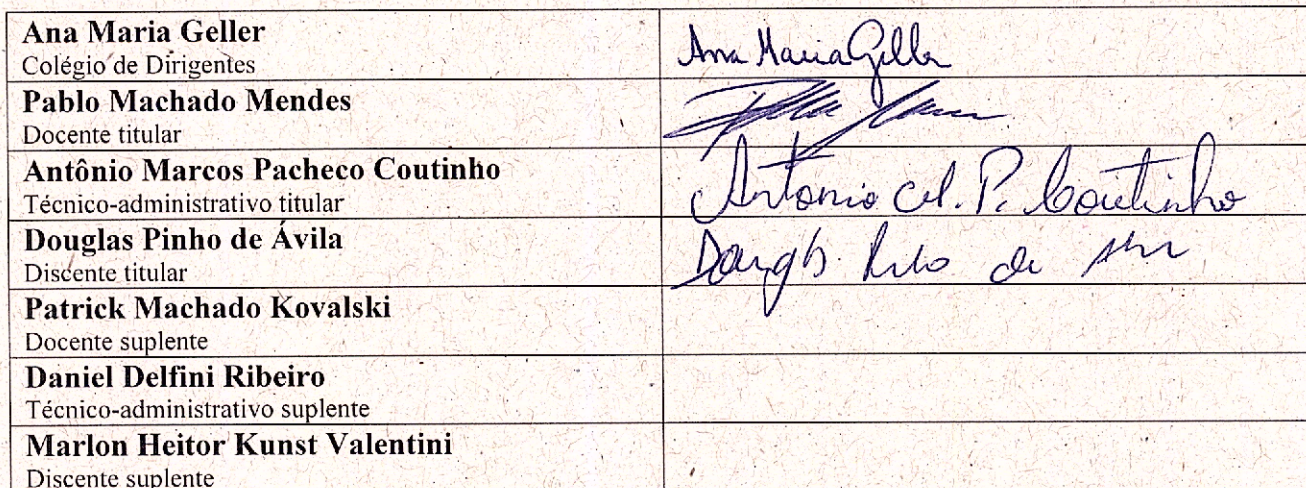 Ana Maria Geller
Colégio de Dirigentes
Ana Maria Geller
Pablo Machado Mendes
Docente titular
Antônio Marcos Pacheco Coutinho
Técnico-administrativo titular
Antonio M. P. Coutinho
Douglas Pinho de Ávila
Discente titular
Douglas de
Patrick Machado Kovalski
Docente suplente
Daniel Delfini Ribeiro
Técnico-administrativo suplente
Marlon Heitor Kunst Valentini
Discente suplente